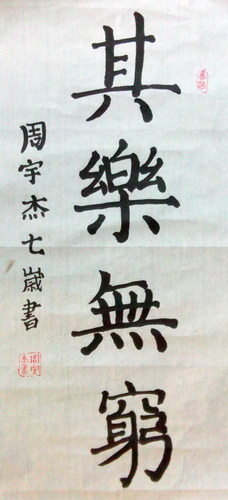 其樂無窮
周宇杰七歲書